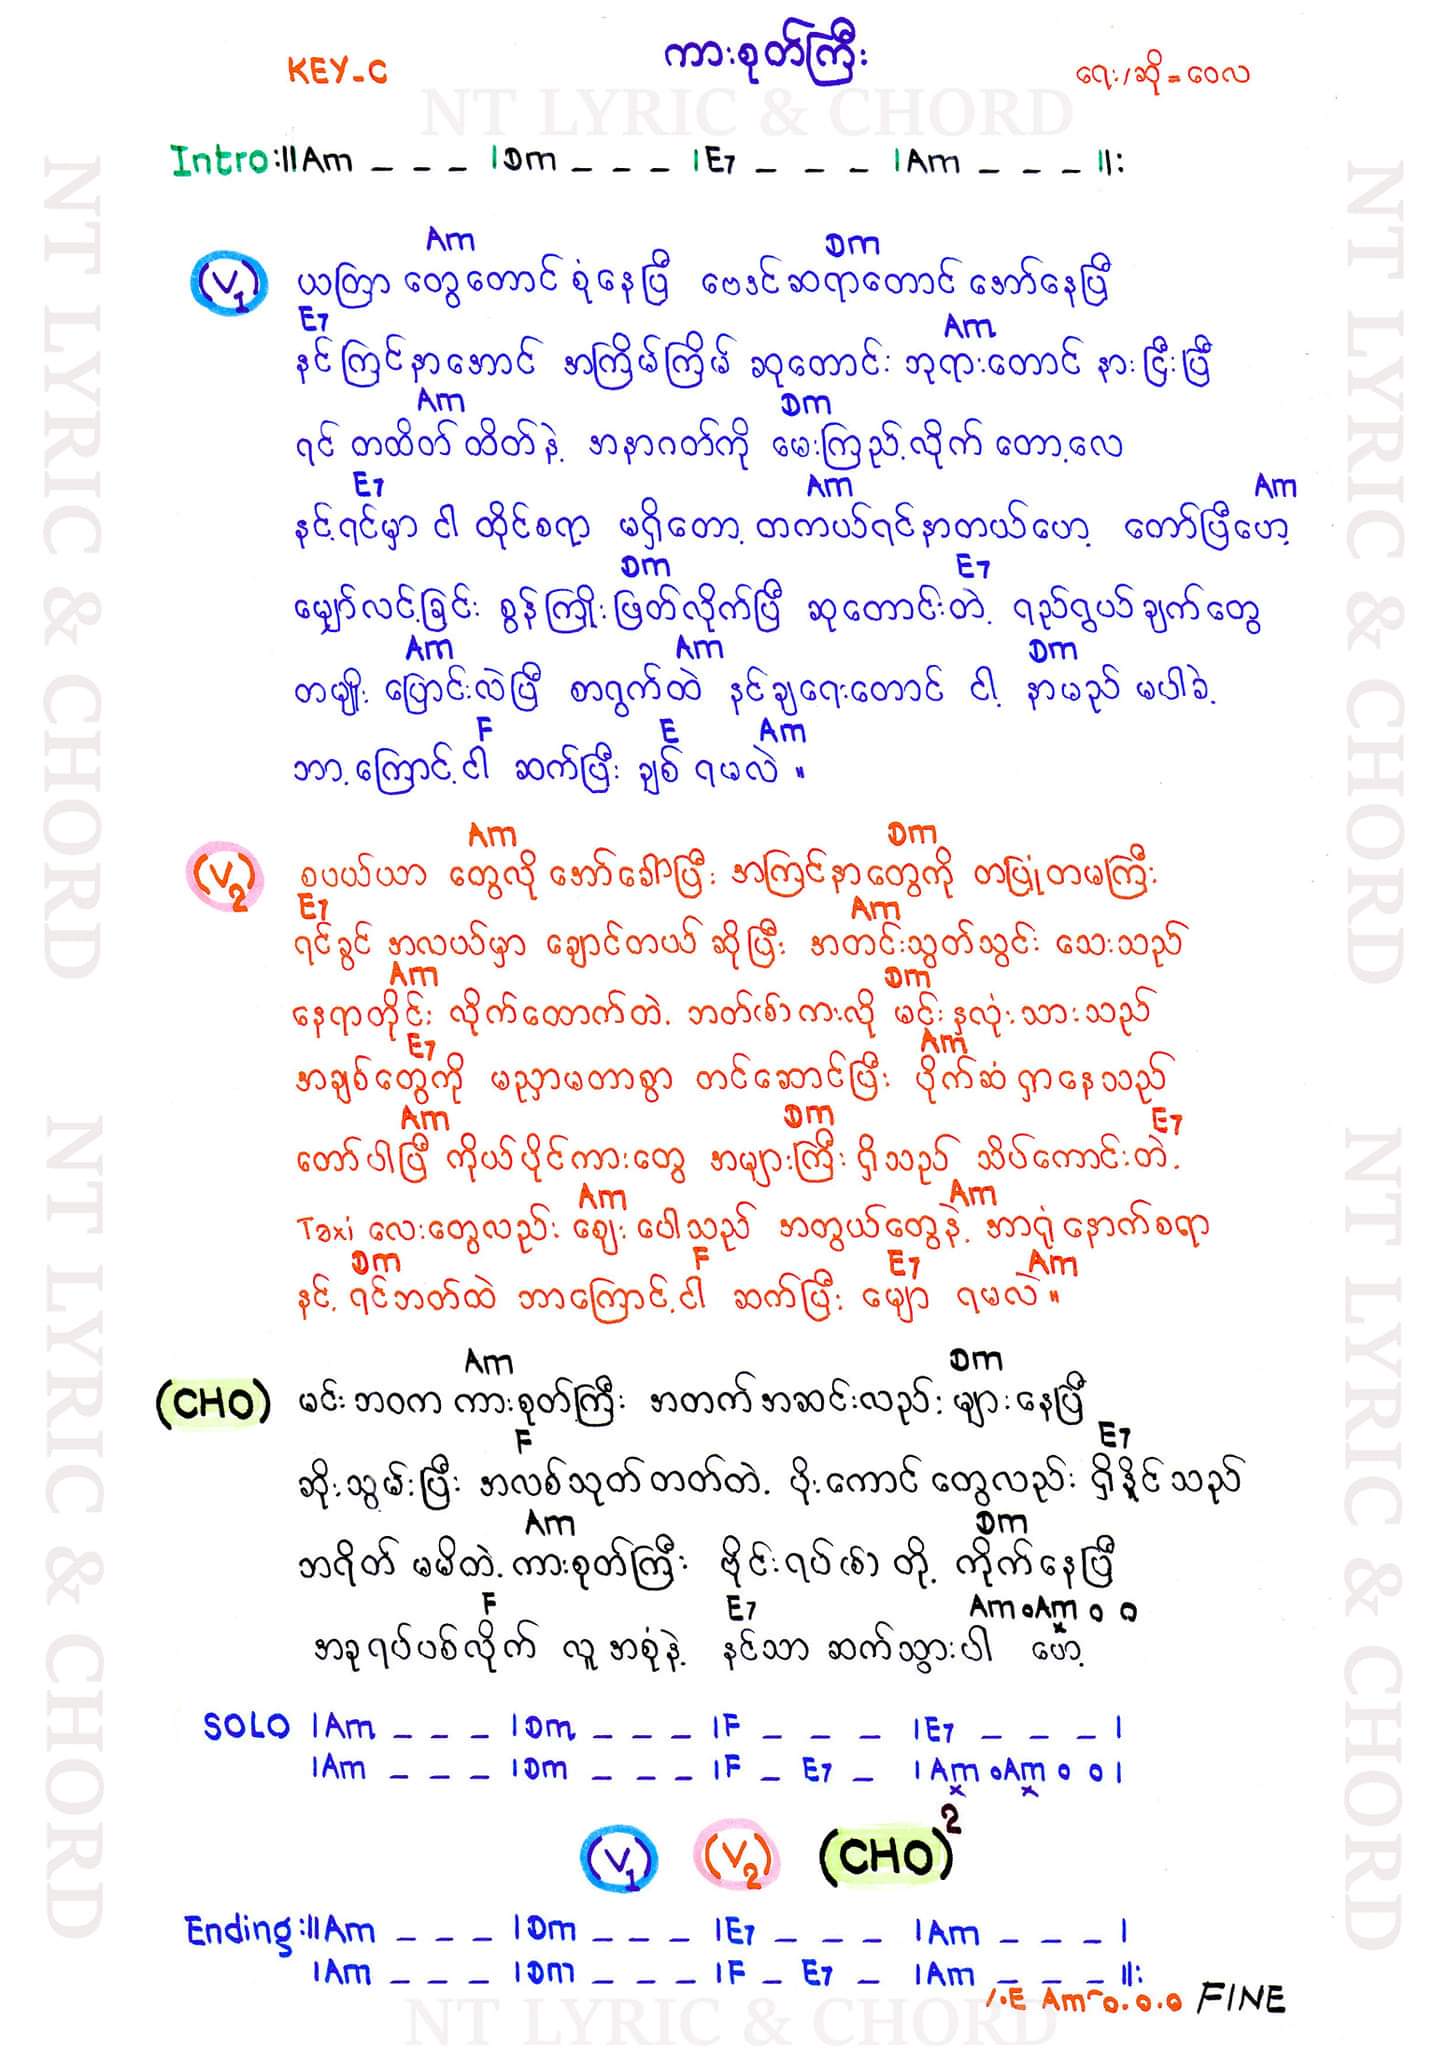 ကားစုတ်ကြီး
KEY-C
ရေး/ဆို = ဝေလ
NT LYRIC & CHORD
Intro :||Am _ _ _ |Dm _ _ _ |E7 _ _ _ |Am _ _ _ ||:
Am Dm
(V1) ယတြာ တွေတောင် စုံနေပြီ ဗေဒင်ဆရာတောင် အော်နေပြီ
E7 Am
နင်ကြင်နာအောင် အကြိမ်ကြိမ် ဆုတောင်း ဘုရားတောင် နားငြီးပြီ
Am Dm
ရင် တထိတ်ထိတ်နဲ့ အနာဂတ်ကို မေးကြည့်လိုက် တော့လေ
E7 Am Am
နင့်ရင်မှာ ငါ ထိုင်စရာ မရှိတော့ တကယ်ရင်နာတယ်ဟေ့ တော်ပြီဟေ့
Dm E7
မျှော်လင့်ခြင်း စွန်ကြိုးဖြတ်လိုက်ပြီ ဆုတောင်းတဲ့ ရည်ရွယ်ချက်တွေ
Am Am Dm
တမျိုး ပြောင်းလဲပြီ စာရွက်ထဲ နင်ချရေးတောင် ငါ့ နာမည် မပါခဲ့
F E Am
ဘာ့ကြောင့်ငါ ဆက်ပြီး ချစ် ရမလဲ ။
Am Dm
(V2) စပယ်ယာ တွေလို အော်ခေါ်ပြီး အကြင်နာတွေကို တပြုံတမကြီး
E7 Am
ရင်ခွင် အလယ်မှာ ချောင်တယ် ဆိုပြီး အတင်းသွတ်သွင်း သေးသည်
Am Dm
နေရာတိုင်း လိုက်ထောက်တဲ့ ဘတ်(စ်)ကားလို မင်းနှလုံးသားသည်
E7 Am
အချစ်တွေကို မညှာမတာစွာ တင်ဆောင်ပြီး ပိုက်ဆံ ရှာနေသည်
Am Dm E7
တော်ပါပြီ ကိုယ်ပိုင်ကားတွေ အများကြီးရှိသည် သိပ်ကောင်းတဲ့
Am Am
Taxi လေးတွေလည်း ဈေး ပေါသည် အတွယ်တွေနဲ့ အာရုံနောက်စရာ
Dm F E7 Am
နင့် ရင်ဘတ်ထဲ ဘာကြောင့်ငါ ဆက်ပြီး မျှော ရမလဲ ။
Am Dm
(CHO) မင်းဘဝက ကားစုတ်ကြီး အတက်အဆင်းလည်း များနေပြီ
F E7
ဆိုးသွမ်းပြီး အလစ်သုတ်တတ်တဲ့ ပိုးကောင်တွေလည်း ရှိနိုင်သည်
Am Dm
ဘရိတ် မမိတဲ့ ကားစုတ်ကြီး ဗိုင်းရပ်(စ်) တို့ ကိုက်နေပြီ
F E7 Am o Am o o
x
အခုရပ်ပစ်လိုက် လူအစုံနဲ့ နင်သာ ဆက်သွားပါ ဟေ့
SOLO |Am _ _ _ |Dm _ _ _ |F _ _ _ |E7 _ _ _ |
|Am _ _ _ |Dm _ _ _ |F _ E7 _ |Am o Am o o |
x x
(V1) (V2) (CHO)2
Ending :||Am _ _ _ |Dm _ _ _ |E7 _ _ _ |Am _ _ _ |
|Am _ _ _ |Dm _ _ _ |F _ E7 _ |Am _ _ _ ||:
/.E Am~o.o.o FINE
NT LYRIC & CHORD
NT LYRIC & CHORD
NT LYRIC & CHORD
NT LYRIC & CHORD
NT LYRIC & CHORD